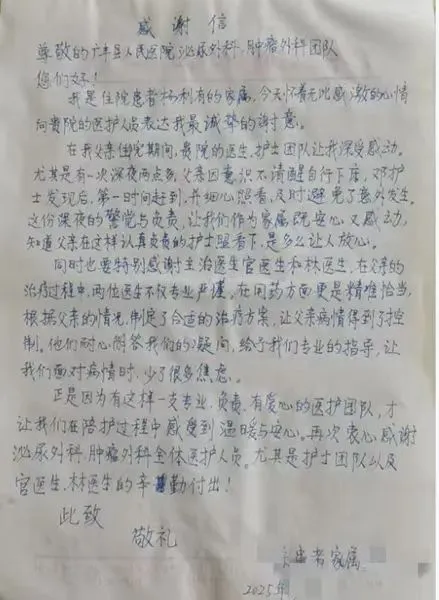 感谢信
尊敬的广丰县人民医院泌尿外科,肿瘤外科团队
您们好!
我是住院患者杨利有的家属,今天怀着无比感激的心情
向贵院的医护人员表达我最诚挚的谢意。
在我父亲住院期间,贵院的医生,护士团队让我深受感动。
尤其是有一次深夜两点多,父亲因意识不清醒自行下床,邓护
士发现后,第一时间赶到,并细心照看,及时避免了意外发生。
这份深夜的警觉与负责,让我们作为家属既安心又感动,
知道父亲在这样认真负责的护士照看下,是多么让人放心。
同时也要特别感谢主治医生官医生和林医生,在父亲的
治疗过程中,两位医生不仅专业严谨。在用药方面更是精准恰当,
根据父亲的情况,制定了合适的治疗方案,让父亲病情得到了控
制。他们耐心解答我们的疑问,给予我们专业的指导,让
我们面对病情时,少了很多焦虑。
正是因为有这样一支专业、负责、有爱心的医护团队,才
让我们在陪护过程中感受到温暖与安心。再次衷心感谢
泌尿外科,肿瘤外科全体医护人员。尤其是护士团队以及
官医生,林医生的辛勤付出!
此致
敬礼
患者家属
2025年